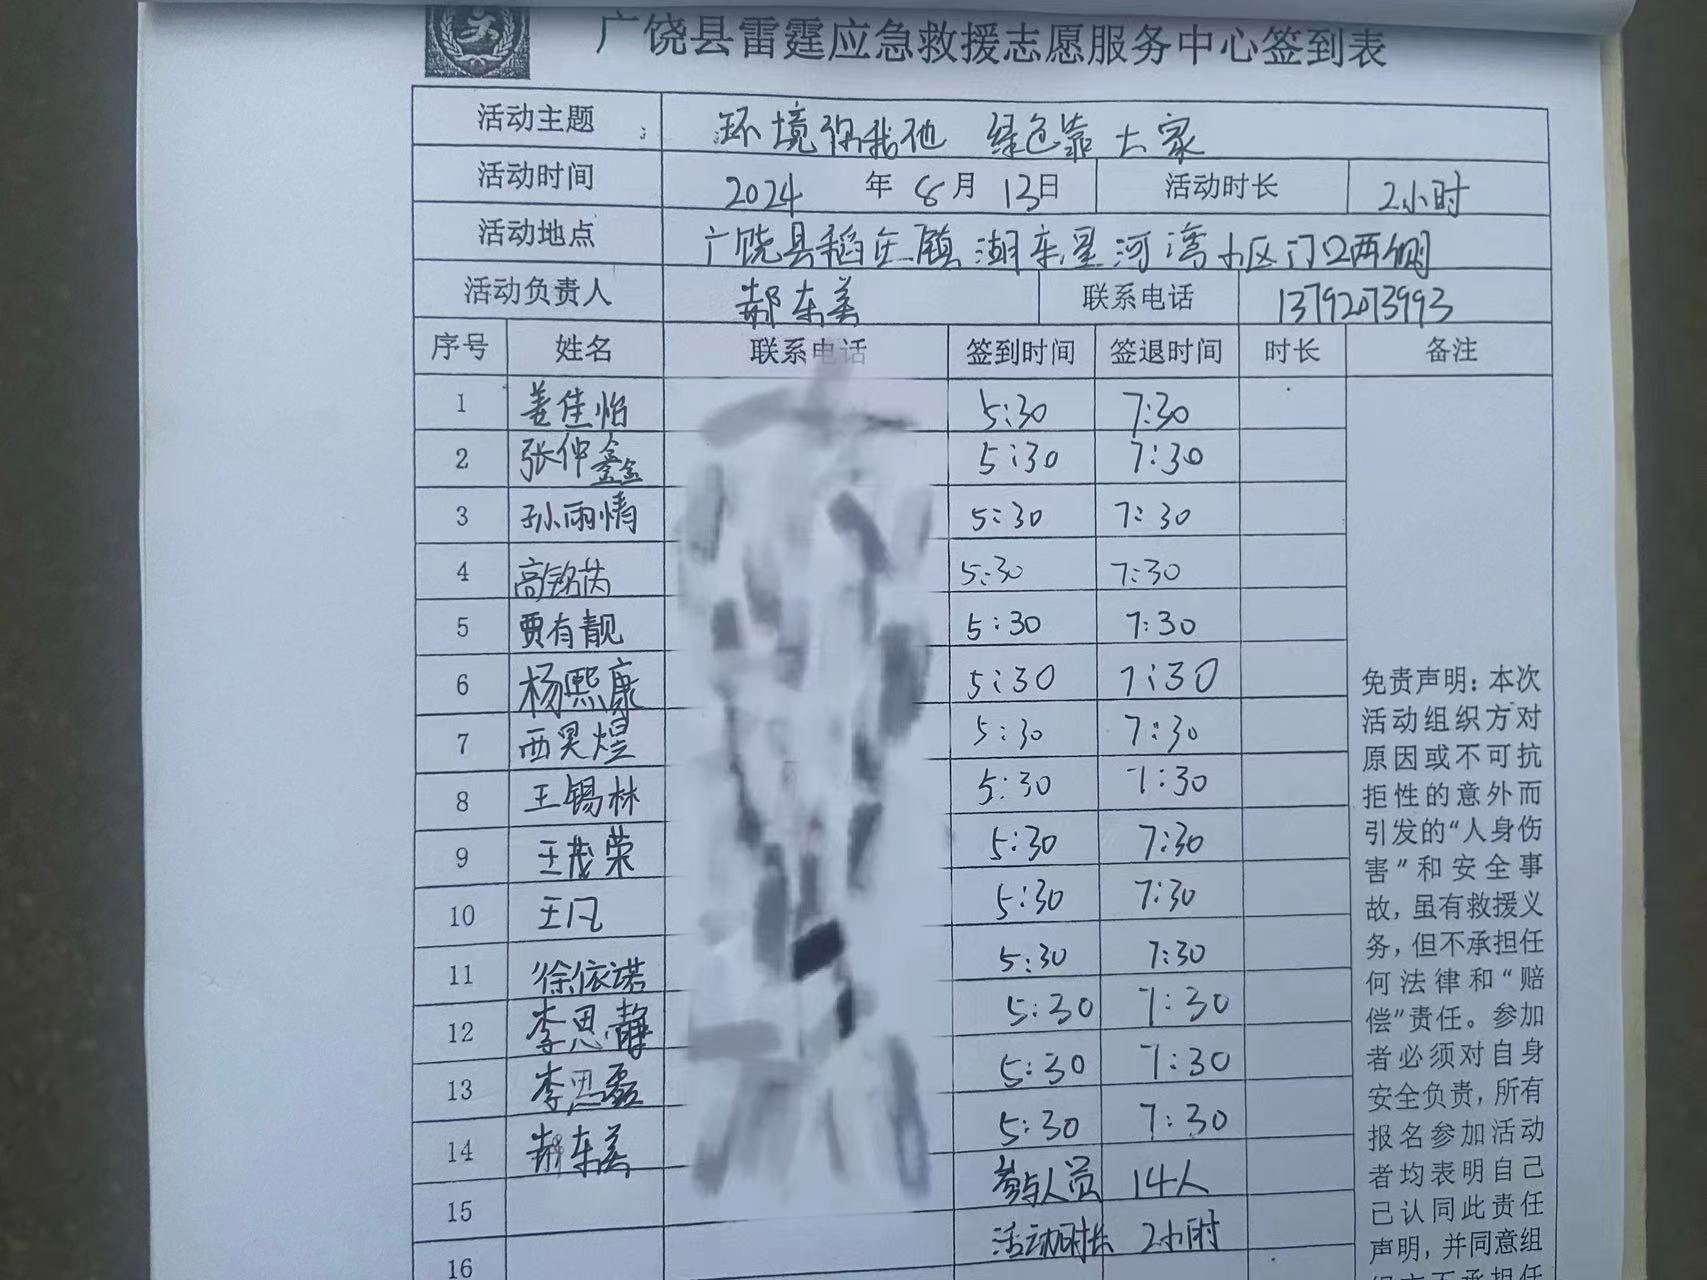 广饶县雷霆应急救援志愿服务中心签到表
活动主题 环境你我他 绿色靠大家
活动时间 2024 年 8 月 13 日 活动时长 2小时
活动地点 广饶县稻庄镇湖东星河湾小区门口两侧
活动负责人 郝东美 联系电话 13792073993
序号 姓名 联系电话 签到时间 签退时间 时长 备注
1 姜佳怡 5:30 7:30
2 张仲鑫 5:30 7:30
3 孙雨情 5:30 7:30
4 高铭茵 5:30 7:30
5 贾有靓 5:30 7:30
6 杨熙康 5:30 7:30
7 西昊煜 5:30 7:30
8 王锡林 5:30 7:30
9 王茂荣 5:30 7:30
10 王凡 5:30 7:30
11 徐依诺 5:30 7:30
12 李思静 5:30 7:30
13 李思磊 5:30 7:30
14 郝东美 5:30 7:30
15 参与人员 14人
16 活动时长 2小时
免责声明：本次
活动组织方对
原因或不可抗
拒性的意外而
引发的“人身伤
害”和安全事
故，虽有救援义
务，但不承担任
何法律和“赔
偿”责任。参加
者必须对自身
安全负责，所有
报名参加活动
者均表明自己
已认同此责任
声明，并同意组